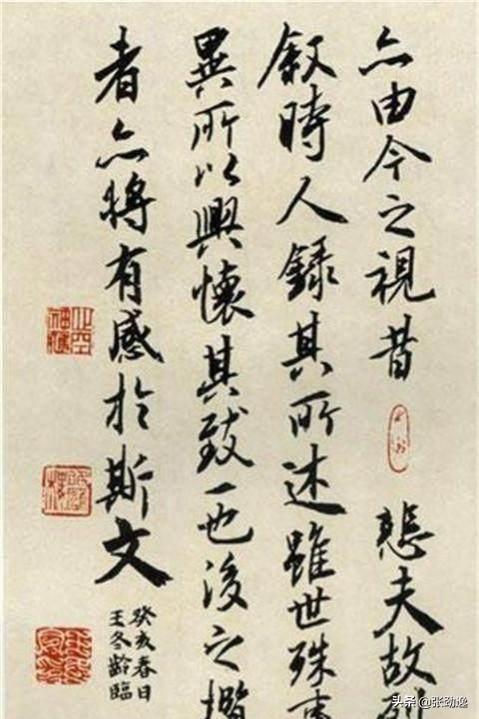 亦由今之視昔悲夫故列
叙時人録其所述雖世殊事
異所以興懷其致一也後之攬
者亦將有感於斯文
癸亥春日
王冬齡臨
头条@张劲逸